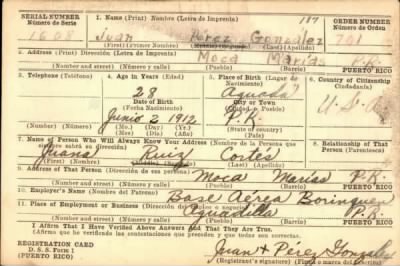 SERIAL NUMBER 1. Name (Print) Nombre (Letra de Imprenta) 187 ORDER NUMBER
Número de Serie Número de Orden
1608 Juan Pérez González 701
(First) (Primer Nombre) (Last) (Apellido)
2. Address (Print) Dirección (Letra de Imprenta) Moca Marías P.R.
(Number and street) (Número y calle) (Town) (Ciudad o Pueblo) PUERTO RICO
3. Telephone (Teléfono) 4. Age in Years (Edad) 5. Place of Birth (Lugar de Nacimiento) 6. Country of Citizenship (Ciudadanía)
28 Aguada
Date of Birth City or Town
(Fecha Nacimiento) (Ciudad o Pueblo) U.S.A.
Junio 2 1912 P.R.
(Number) (Número) (Mo.) (Mes) (Day) (Día) (Yr.) (Año) State or Country (Estado o país)
7. Name of Person Who Will Always Know Your Address (Nombre de la Persona que siempre sabrá su dirección) 8. Relationship of That Person (Parentesco)
Juana Ruiz Cortés
(First) (Nombre) (Last) (Apellido)
9. Address of That Person (Dirección de esa persona) Moca Marías P.R.
(Number and street) (Número y calle) (Town) (Ciudad o Pueblo) PUERTO RICO
10. Employer's Name (Nombre del Patrono) Base Aérea Borinquen
11. Place of Employment or Business (Dirección del empleo o negocio) Aguadilla P.R.
(Number and street) (Número y calle) (Town) (Ciudad o Pueblo) PUERTO RICO
I Affirm That I Have Verified Above Answers and That They Are True.
(Afirmo que he verificado las contestaciones que preceden y que todas son correctas.
REGISTRATION CARD
D. S. S. Form 1 Juan Pérez González
(PUERTO RICO) (Registrant's signature) (Firma o marca del